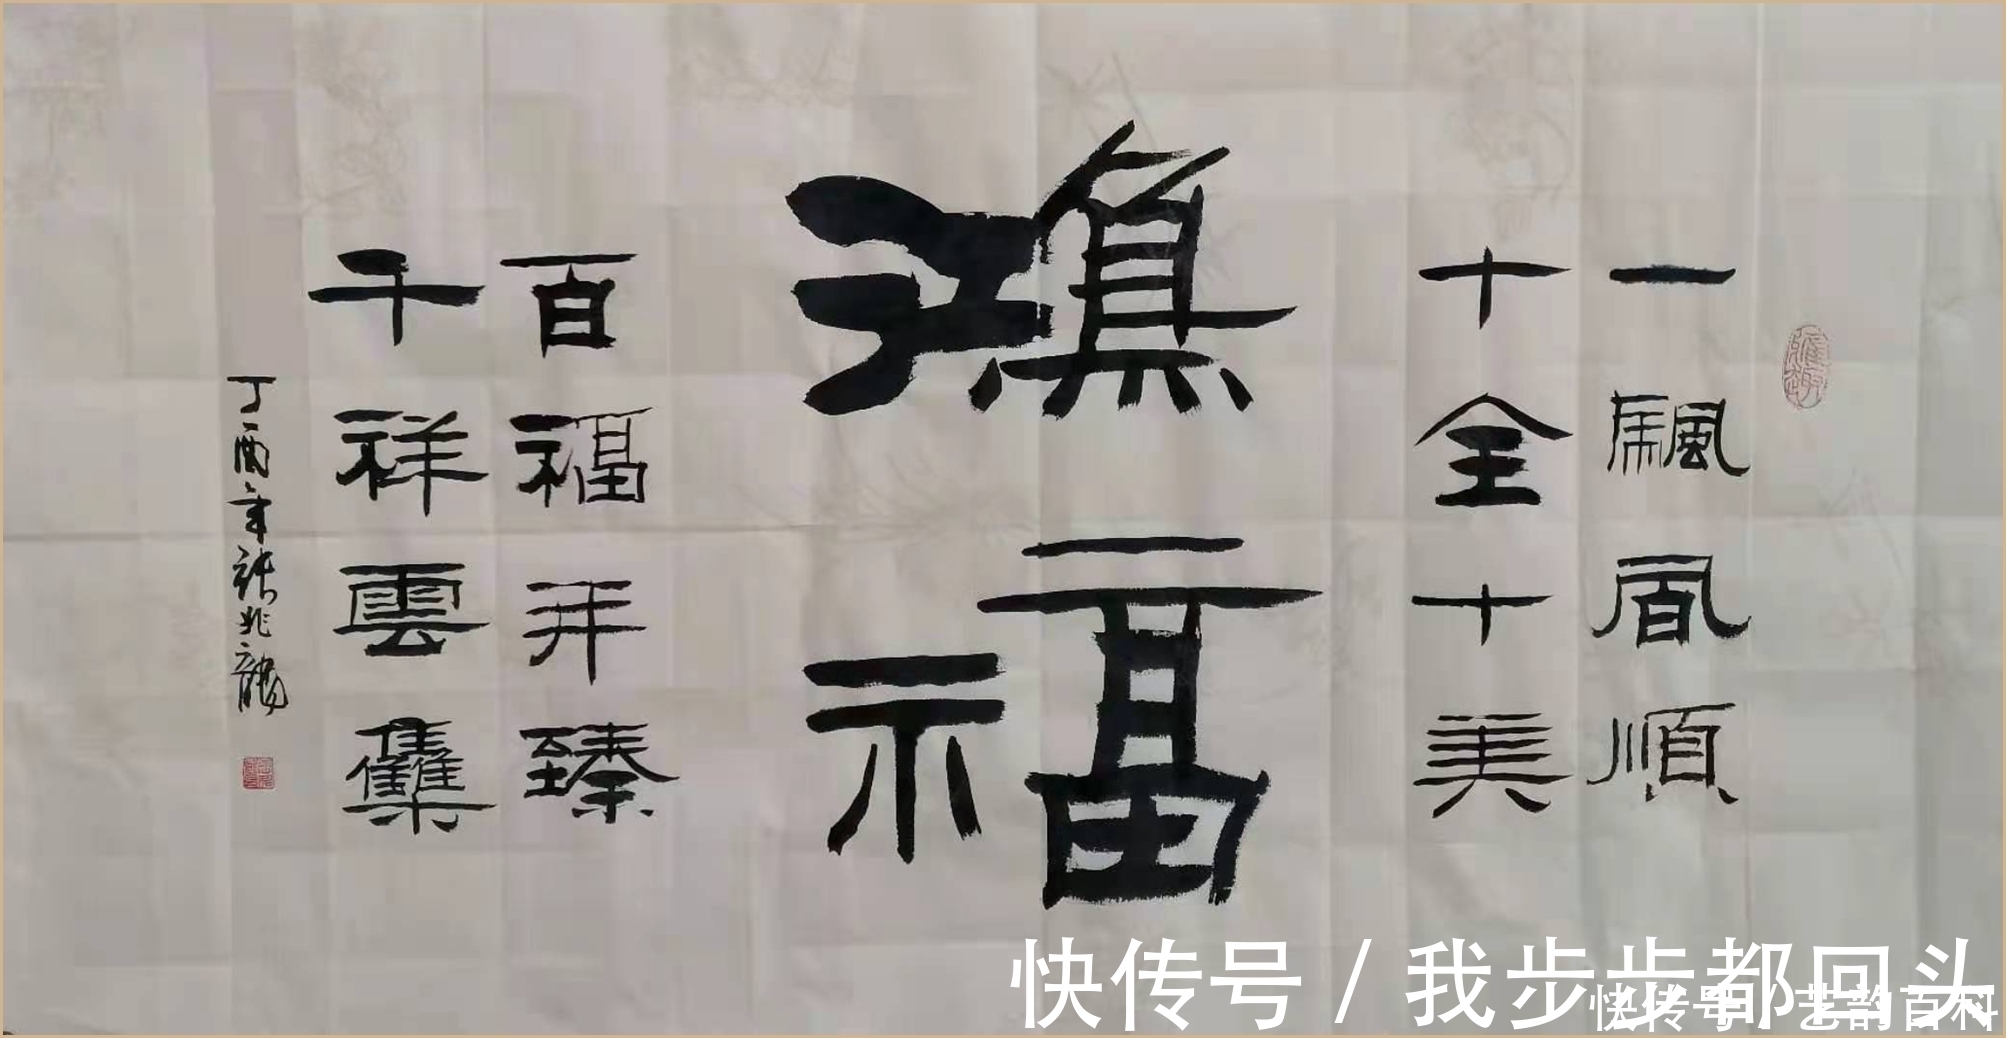 一颿凮順
十全十美
鴻福
百福并臻
千祥雲雧
丁酉年張兆龍
快传号/我步步都回头
快传号/艺韵百科